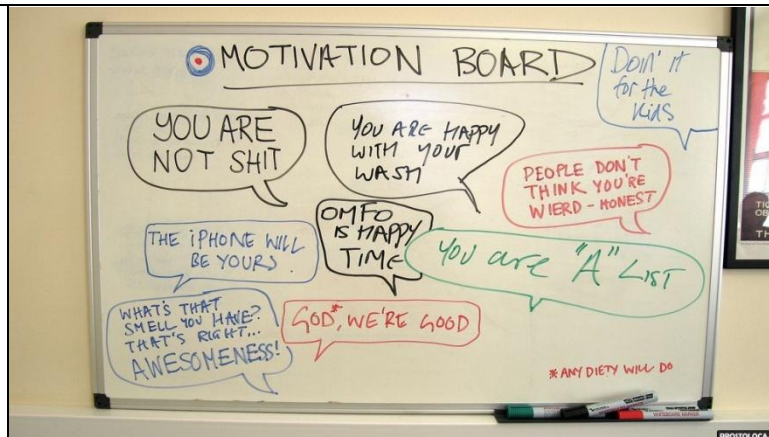 MOTIVATION BOARD
Doin' it
for the
kids
YOU ARE
NOT SHIT
YOU ARE HAPPY
WITH YOUR
WASH
PEOPLE DON'T
THINK YOU'RE
WIERD - HONEST
OMFO
IS HAPPY
TIME
THE iPHONE WILL
BE YOURS.
YOU are "A" LIST
WHAT'S THAT
SMELL YOU HAVE?
THAT'S RIGHT...
AWESOMENESS!
GOD*, WE'RE GOOD
* ANY DIETY WILL DO